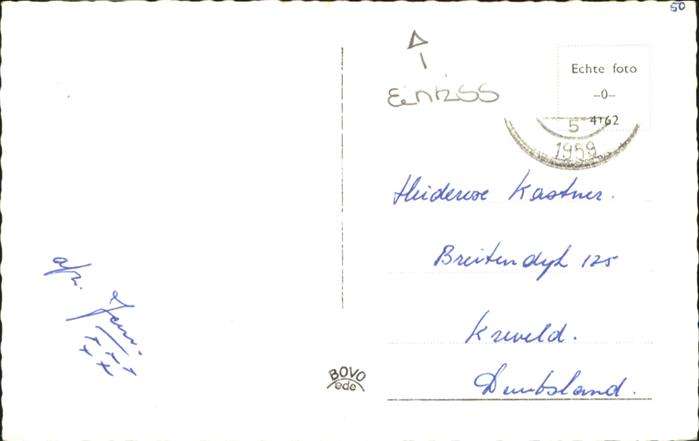 50
Einriss
Echte foto
–0–
4162
5
1959
Heiderose Kastner.
Breitendyk 125
Kreveld.
Duitsland.
afz.
BOVO
ede